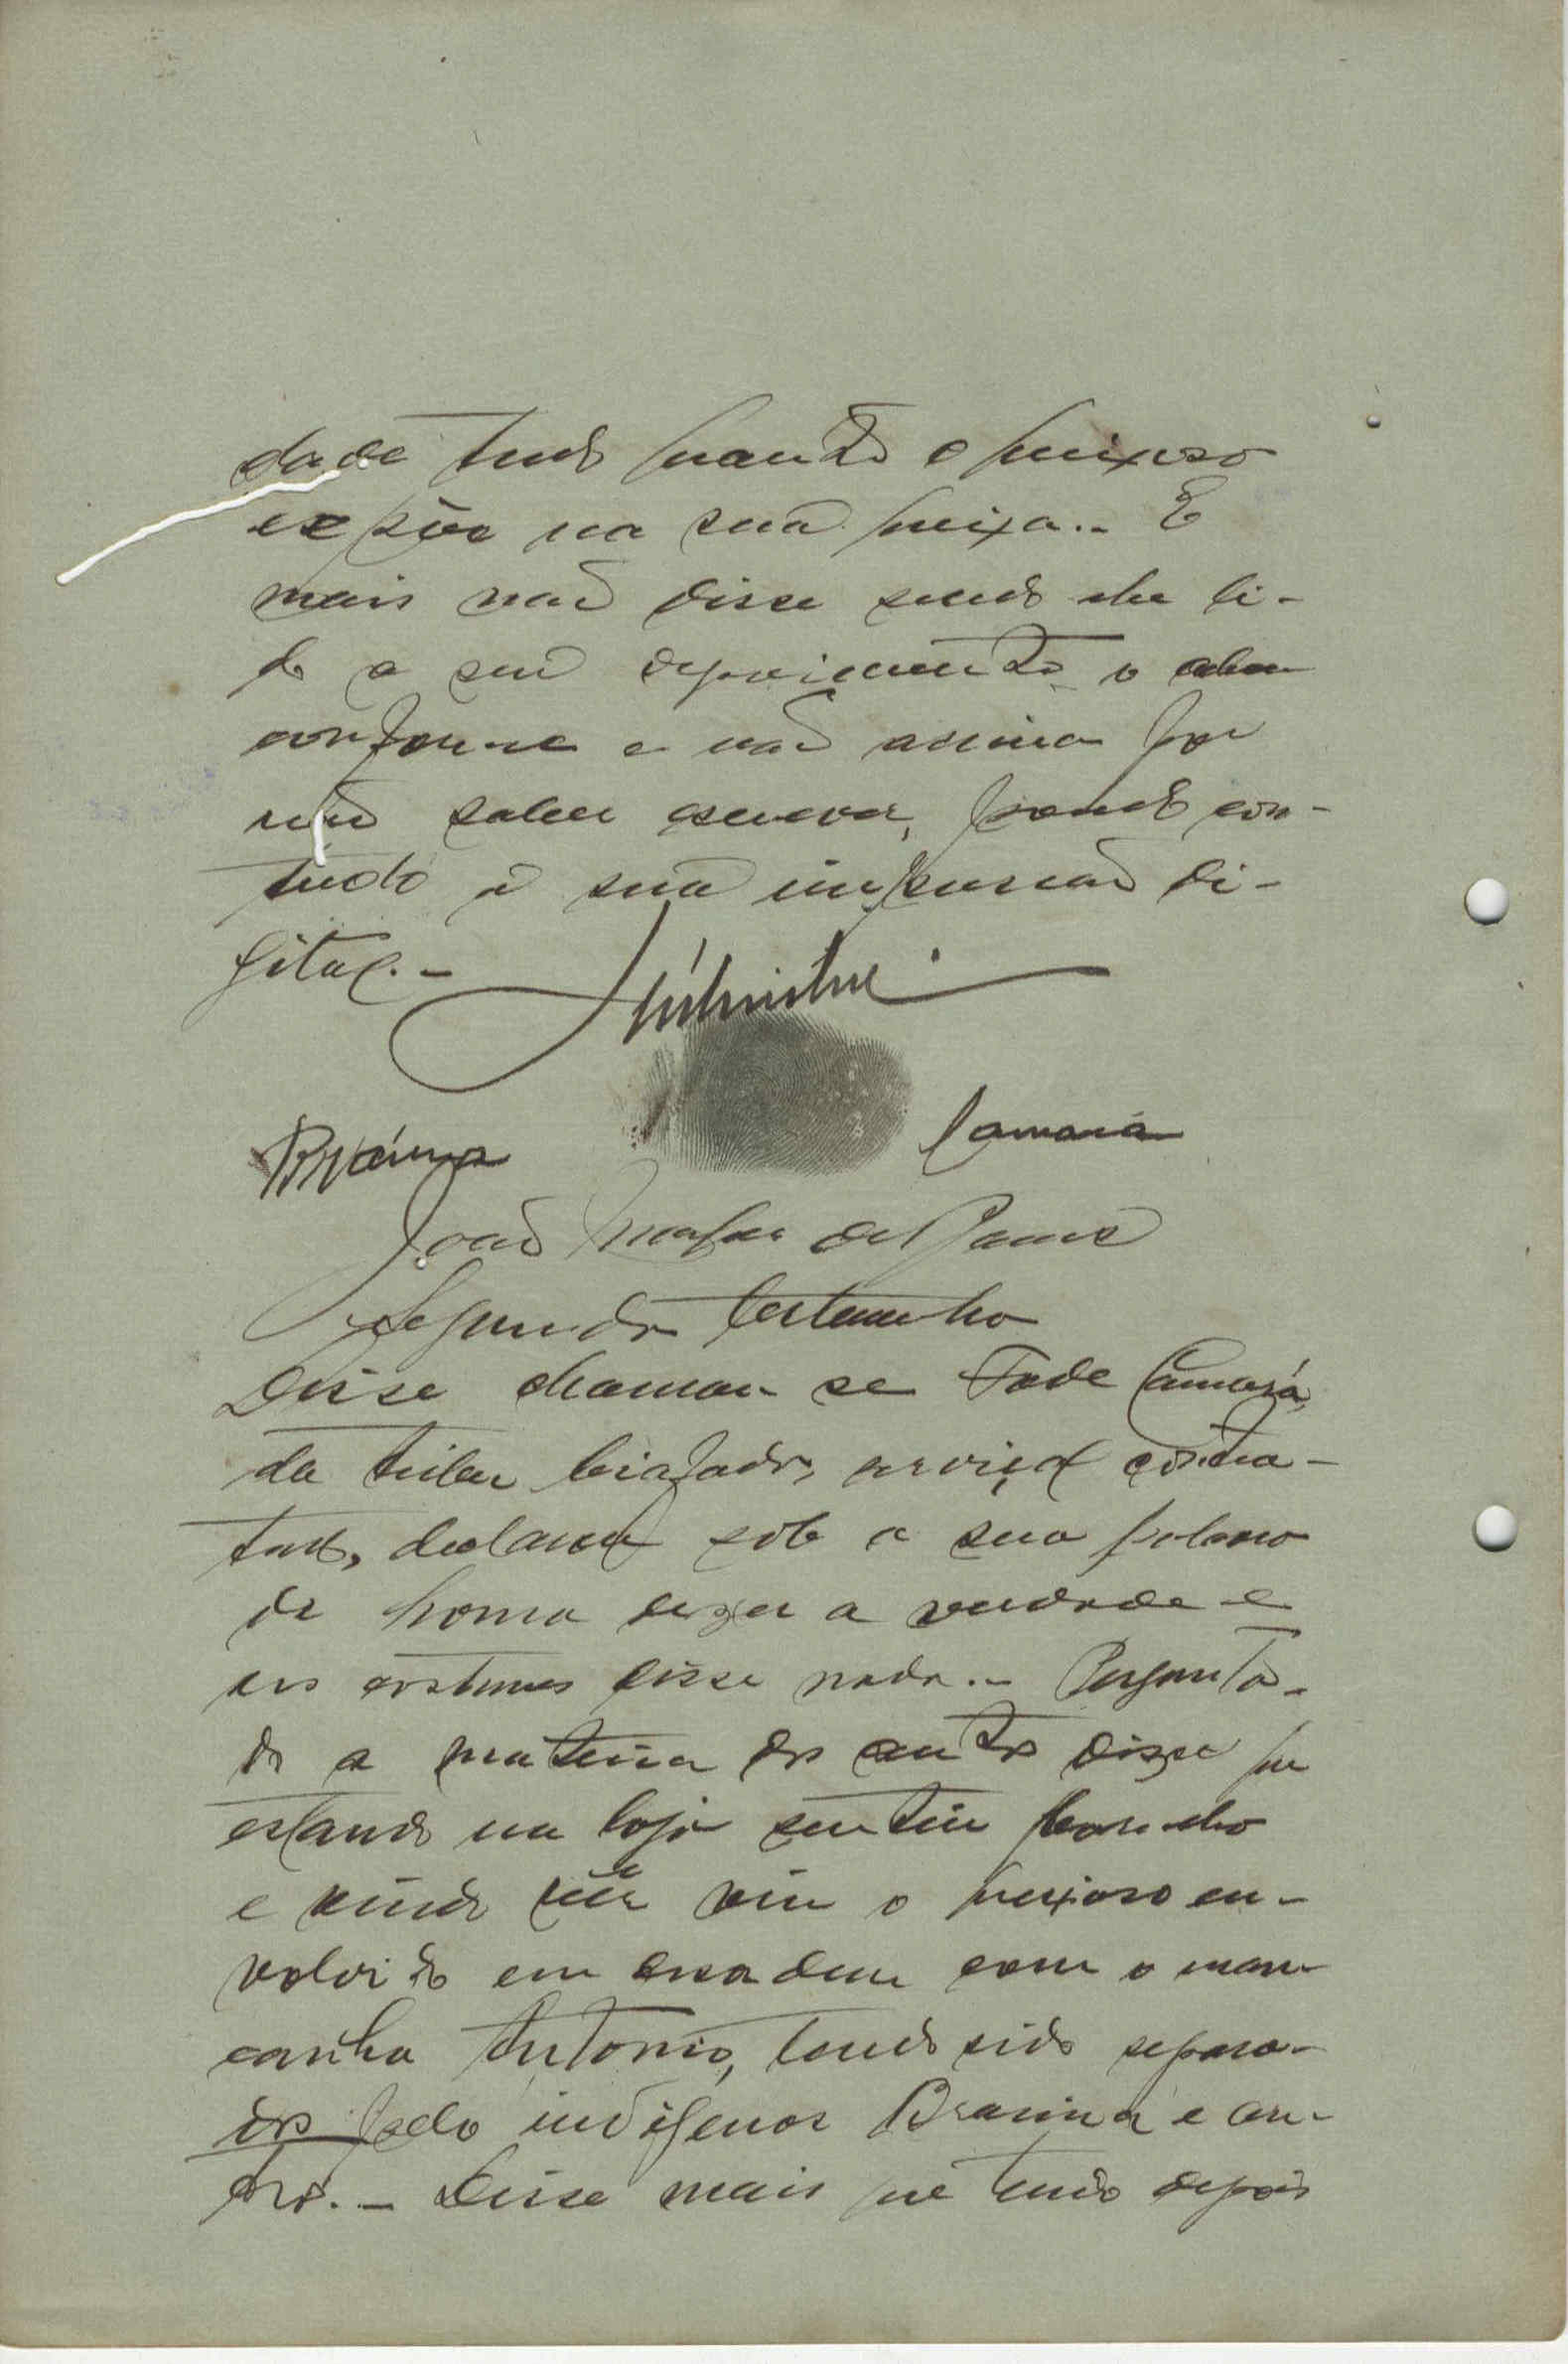 dade tudo quanto o queixoso
expõe na sua queixa.- E
mais não disse sendo-lhe li-
do o seu depoimento o achou
conforme e não assina por
não saber escrever, pondo con-
tudo a sua impressão di-
gital.-
Braima Camará
João de
Segunda testemunha
Disse chamar-se Fode Camará,
da tribu biafada, serviçal contra-
tado, declarou sob a sua palavra
de honra dizer a verdade e
aos costumes disse nada.- Pergunta-
do a materia do auto disse que
estando na loja sentiu barulho
e vindo vêr viu o queixoso en-
volvido em desordem com o man-
canha Antonio, tendo sido separa-
dos pelo indigenas Braima e ou-
tro.- Disse mais que tendo depois